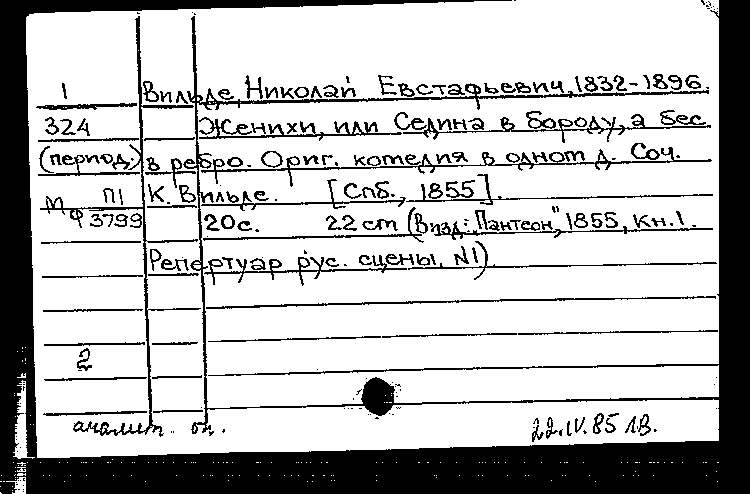 1 Вильде, Николай Евстафьевич, 1832-1896.
324 Женихи, или Седина в бороду, а бес
(период.) в ребро. Ориг. комедия в одном д. Соч.
М П1 К. Вильде. [Спб., 1855].
ф 3799 20с. 22 cm (В изд.: "Пантеон", 1855, кн. 1.
Репертуар рус. сцены, N1)
2
аналит. оп. 22.IV.85 ЛВ.